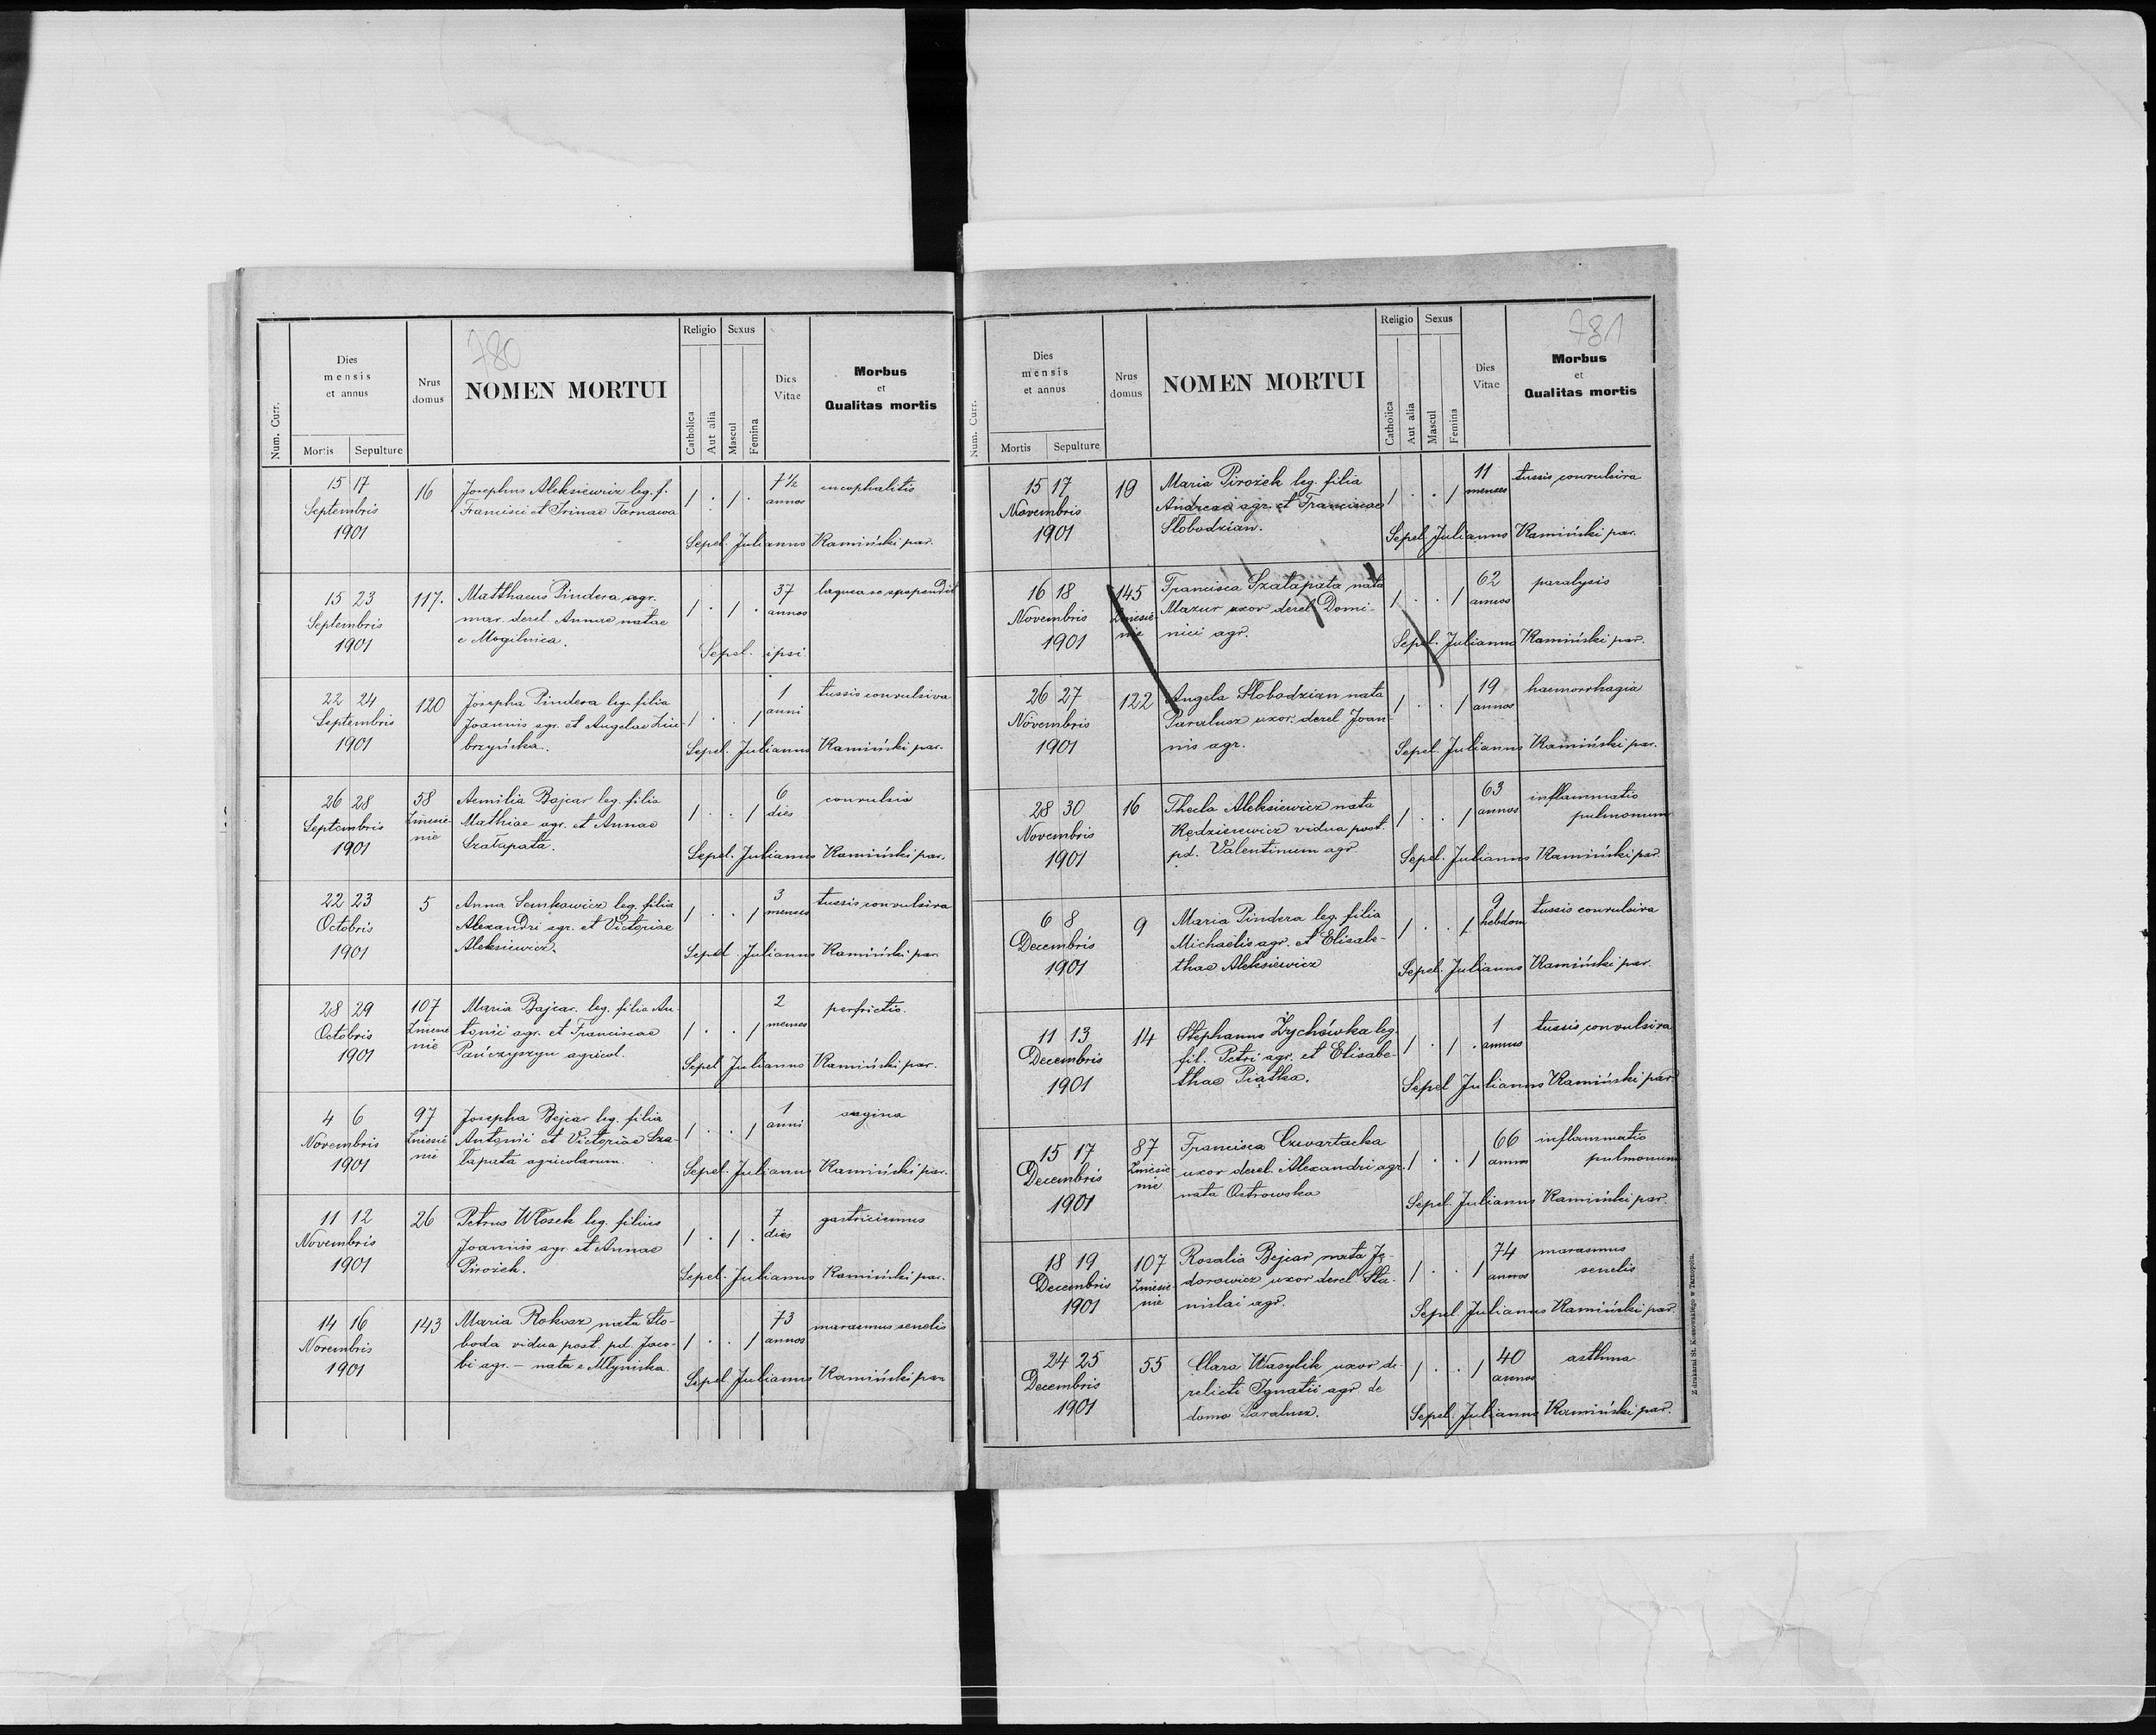 780
Num. Curr.
Dies
mensis
et annus
Mortis Sepulture
Nrus
domus
NOMEN MORTUI
Religio Sexus
Catholica
Aut alia
Mascul
Femina
Dies
Vitae
Morbus
et
Qualitas mortis
15 17
Septembris
1901
16
Josephus Aleksiewicz leg. f.
Francisci et Irinae Tarnawa
1 . 1 .
7½
annos
encephalitis
Sepel. Julianus Kamiński par.
15 23
Septembris
1901
117.
Matthaeus Pindera agr.
mar. derel. Annae natae
e Mogilnica.
1 . 1 .
37
annos
laqueo se
Sepel. ipsi
22 24
Septembris
1901
120
Josepha Pindera leg. filia
Joannis agr. et Angelae Ziu-
brzyńska.
1 . . 1
1
anni
tussis convulsiva
Sepel. Julianus Kamiński par.
26 28
Septembris
1901
58
Zniesie-
nie
Aemilia Bajcar leg. filia
Mathiae agr. et Annae
Szałapata.
1 . . 1
6
dies
convulsio
Sepel. Julianus Kamiński par.
22 23
Octobris
1901
5
Anna Senkowicz leg. filia
Alexandri agr. et Victoriae
Aleksiewicz.
1 . . 1
3
menses
tussis convulsiva
Sepel. Julianus Kamiński par.
28 29
Octobris
1901
107
nie
Maria Bajcar. leg. filia An-
tonii agr. et Franciscae
Pańczyszyn agricol.
1 . . 1
2
menses
perfrictio.
Sepel Julianus Kamiński par.
4 6
Novembris
1901
97
Zniesie
nie
Josepha Bejcar leg. filia
Antonii et Victoriae Sza-
łapata agricolarum.
1 . . 1
1
anni
angina
Sepel. Julianus Kamiński par.
11 12
Novembris
1901
26
Petrus Włoszek leg. filius
Joannis agr. et Annae
Pirożek.
1 . 1 .
7
dies
gastricismus
Sepel. Julianus Kamiński par.
14 16
Novembris
1901
143
Maria Rokosz nata Sło-
boda vidua post. pd. Jaco-
bi agr. – nata e Młyniska.
1 . . 1
73
annos
marasmus senelis
Sepel Julianus Kamiński par
781
Num. Curr.
Dies
mensis
et annus
Mortis Sepulture
Nrus
domus
NOMEN MORTUI
Religio Sexus
Catholica
Aut alia
Mascul
Femina
Dies
Vitae
Morbus
et
Qualitas mortis
15 17
Novembris
1901
19
Maria Pirożek leg. filia
Andreae agr. et Franciscae
Słobodzian.
1 . . 1
11
menses
tussis convulsiva
Sepel Julianus Kamiński par.
16 18
Novembris
1901
145
Zniesie
nie
Francisca Szałapata nata
Mazur uxor derel Domi-
nici agr.
1 . . 1
62
annos
paralysis
Sepel. Julianus Kamiński par.
26 27
Novembris
1901
122
Angela Słobodzian nata
Paralusz uxor. derel Joan-
nis agr.
1 . . 1
19
annos
haemorrhagia
Sepel. Julianus Kamiński par.
28 30
Novembris
1901
16
Thecla Aleksiewicz nata
Kędzierewicz vidua post.
pd. Valentinum agr
1 . . 1
63
annos
inflammatio
pulmonum
Sepel. Julianus Kamiński par.
6 8
Decembris
1901
9
Maria Pindera leg. filia
Michaëlis agr. et Elisabe-
thae Aleksiewicz
1 . . 1
9
hebdom
tussis convulsiva
Sepel. Julianus Kamiński par.
11 13
Decembris
1901
14
Stephanus Zychówka leg.
fil. Petri agr. et Elisabe-
thae Piątka.
1 . 1 .
1
annus
tussis convulsiva
Sepel Julianus Kamiński par
15 17
Decembris
1901
87
Zniesie
nie
Francisca Czwartacka
uxor derel. Alexandri agr.
nata Ostrowska
1 . . 1
66
annos
inflammatio
pulmonum
Sepel. Julianus Kamiński par.
18 19
Decembris
1901
107
Zniesie
nie
Rosalia Bejcar nata Ję-
dorowicz uxor derel. Sta-
nislai agr.
1 . . 1
74
annos
marasmus
senelis
Sepel. Julianus Kamiński par.
24 25
Decembris
1901
55
Clara Wasylik uxor de-
relicti Ignatii agr de
domo Paralusz.
1 . . 1
40
annos
asthma
Sepel. Julianus Kamiński par.
Z drukarni St. Kossowskiego w Tarnopolu.